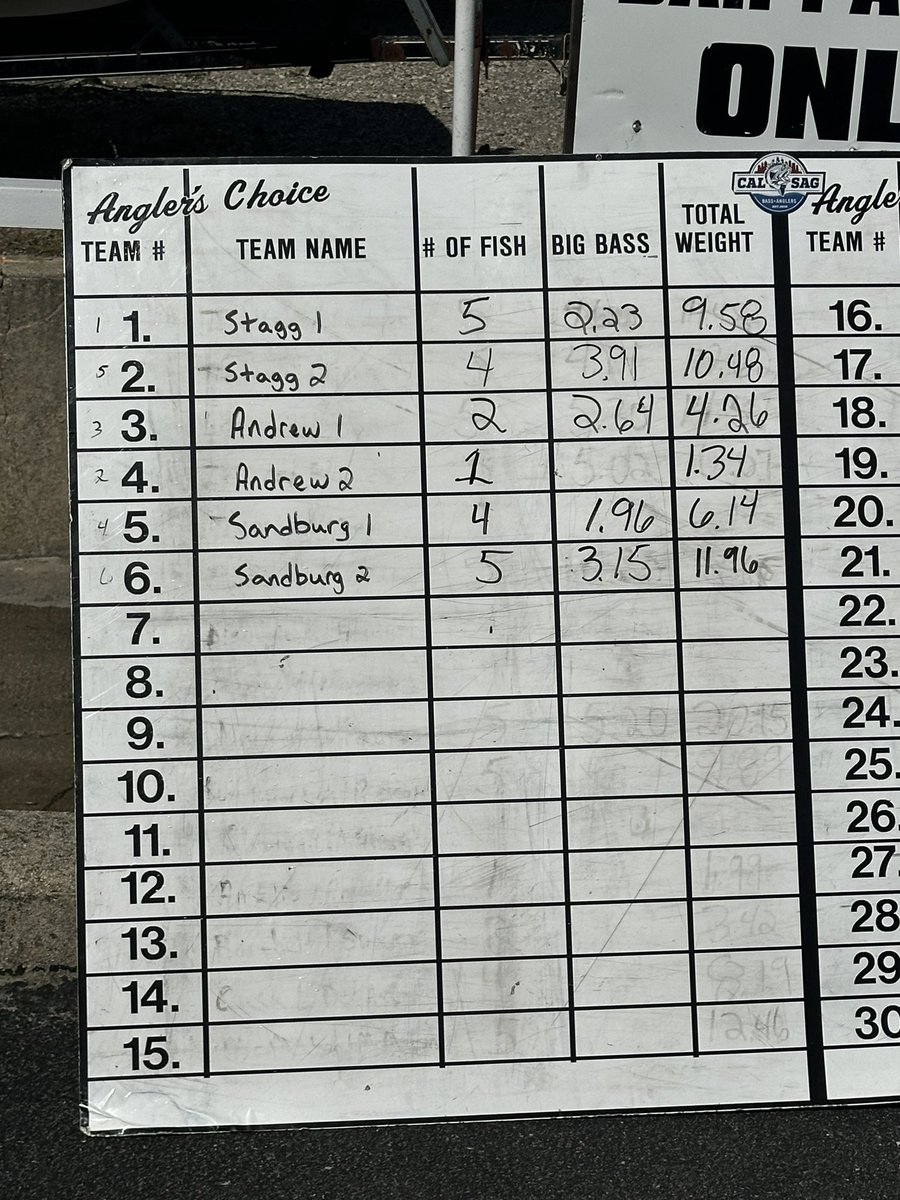 ONL
Angler's Choice
CAL SAG
BASS ANGLERS
Angle
TEAM # TEAM NAME # OF FISH BIG BASS TOTAL WEIGHT TEAM #
1 1. Stagg 1 5 2.23 9.58 16.
5 2. Stagg 2 4 3.91 10.48 17.
3 3. Andrew 1 2 2.64 4.26 18.
2 4. Andrew 2 1 1.34 19.
4 5. Sandburg 1 4 1.96 6.14 20.
6 6. Sandburg 2 5 3.15 11.96 21.
7. 22.
8. 23.
9. 24.
10. 25.
11. 26.
12. 27.
13. 28
14. 29
15. 30